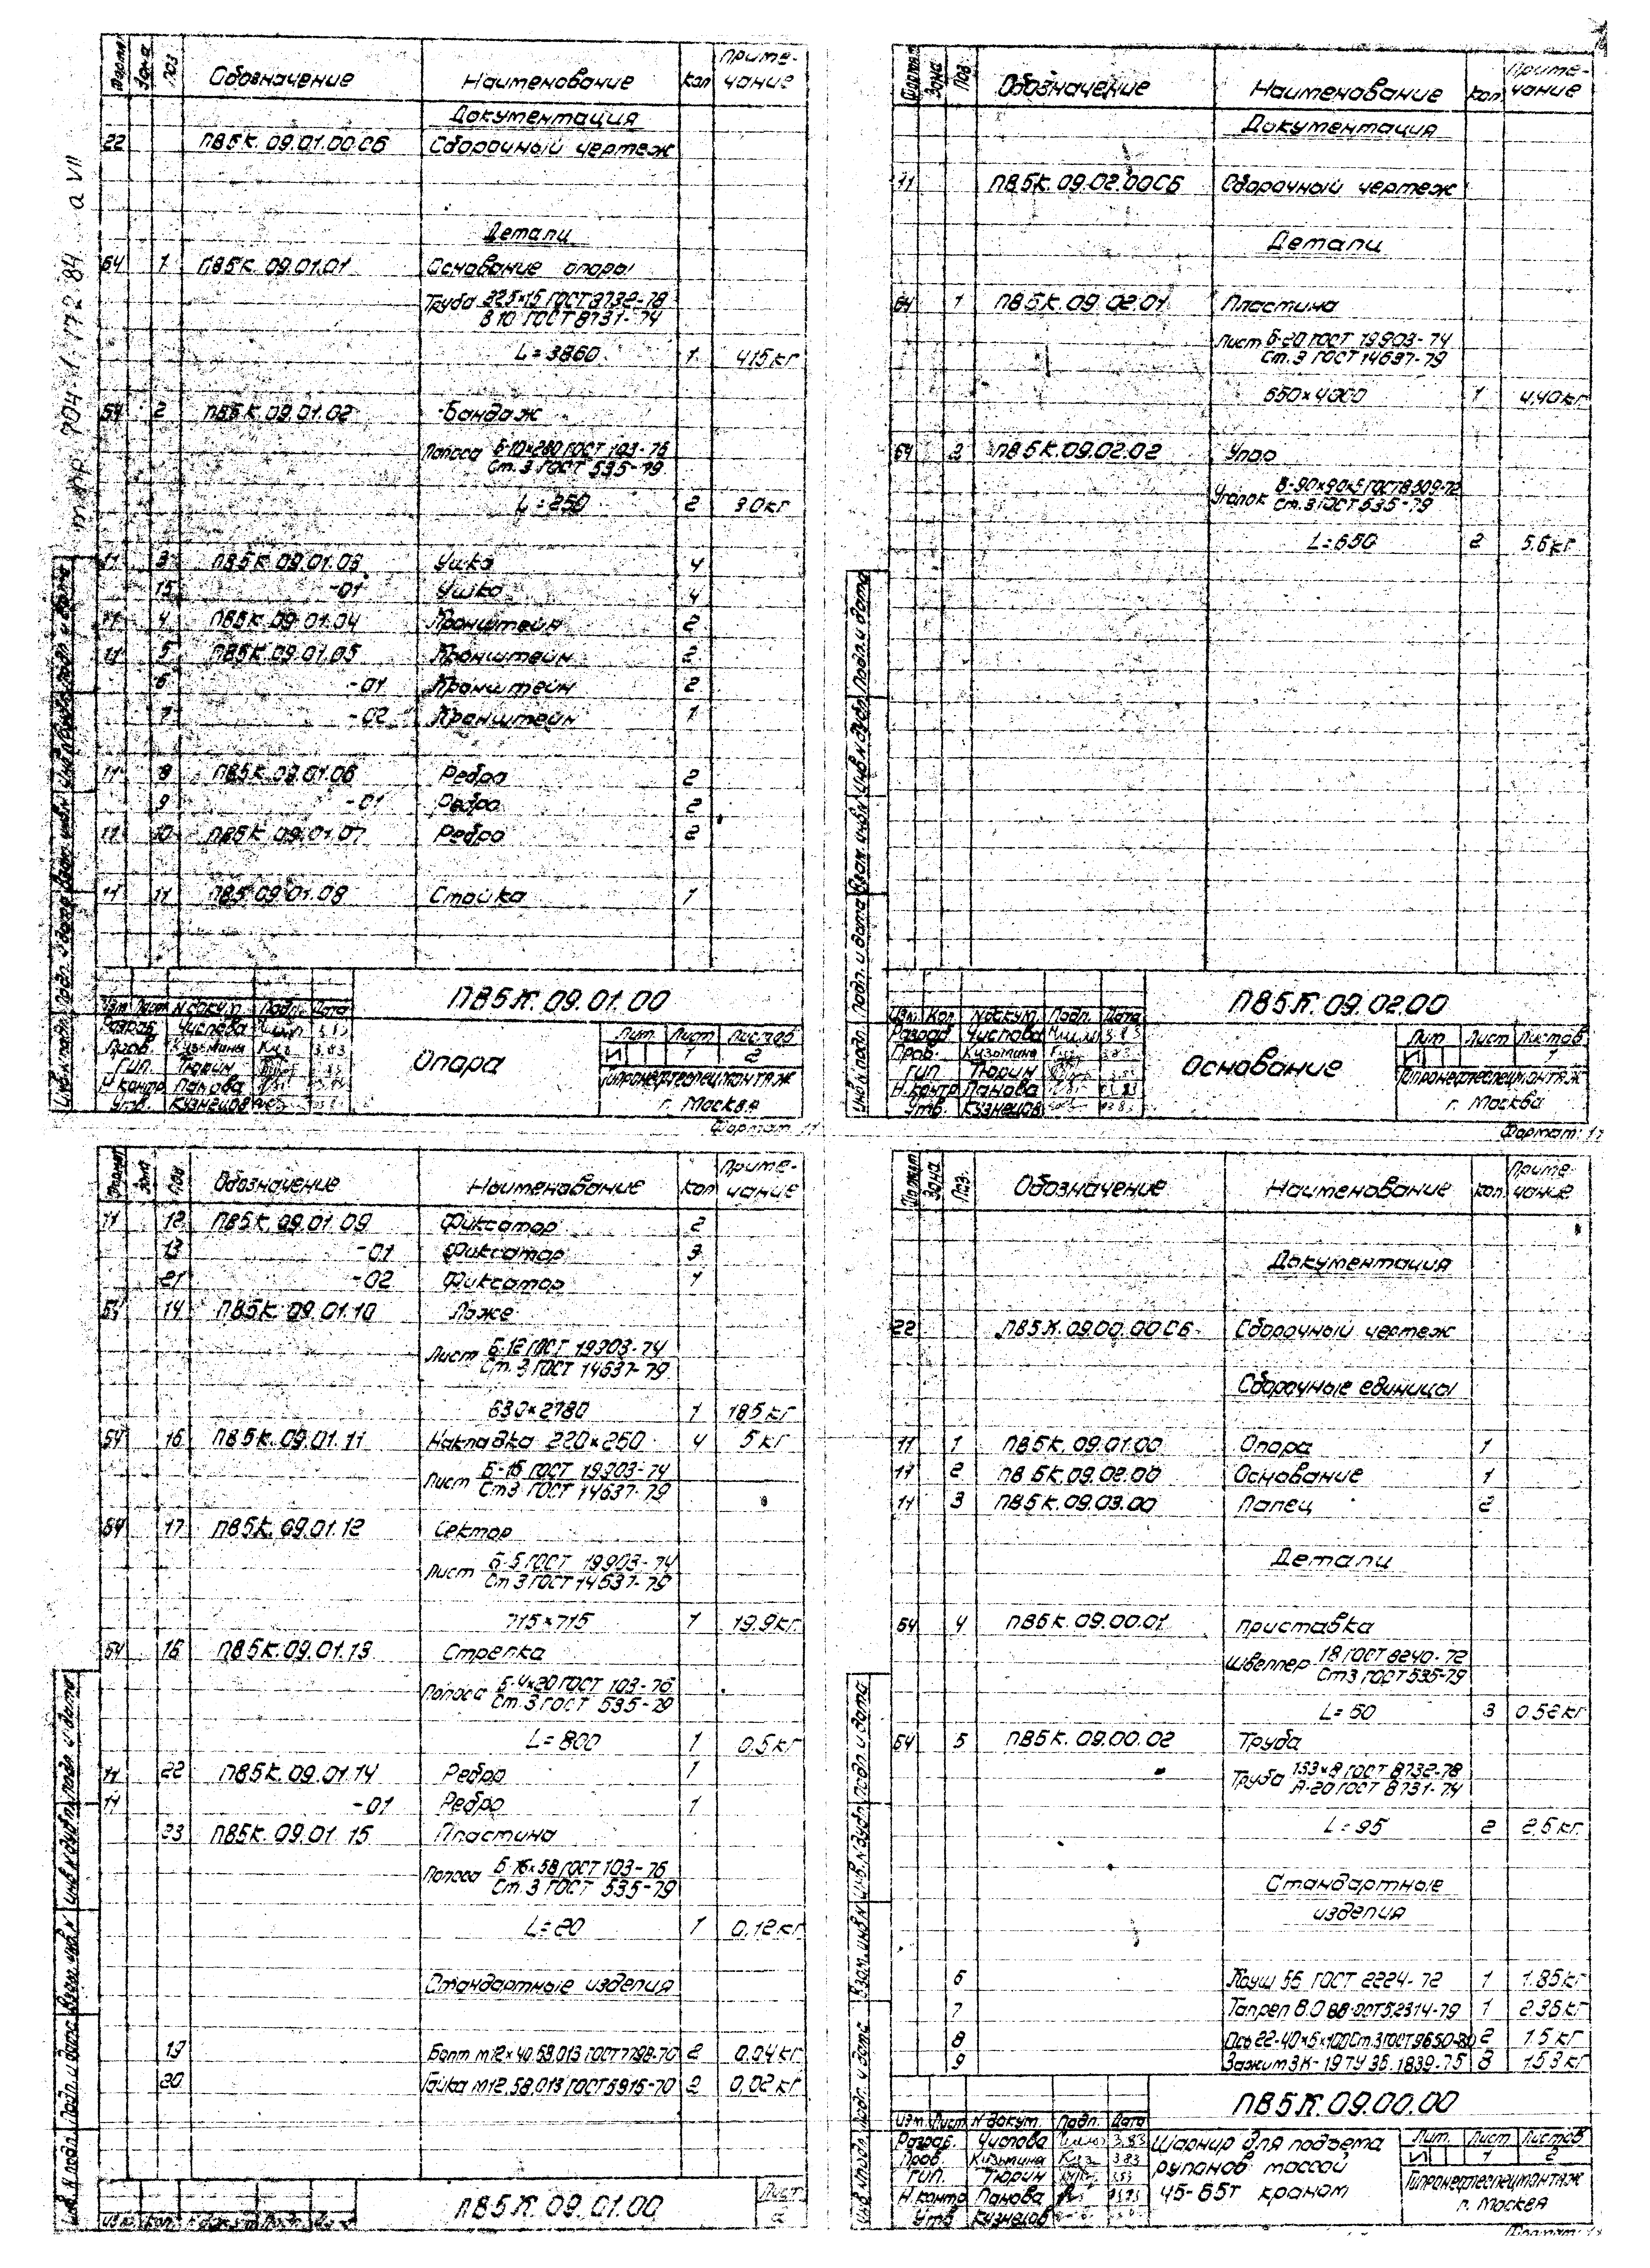 Формат Зона Поз Обозначение Наименование Кол Приме-чание
Документация
22 ПВ5К.09.01.00.СБ Сборочный чертеж
Детали
БЧ 1 ПВ5К.09.01.01 Основание опоры
Труба 325×15 ГОСТ 8732-78
В 10 ГОСТ 8731-74
L=3860 1 415 кг
БЧ 2 ПВ5К.09.01.02 Бандаж
Полоса Б-10×280 ГОСТ 103-76
Ст.3 ГОСТ 535-79
L=250 2 3.0 кг
11 3 ПВ5К.09.01.03 Ушко 4
15 -01 Ушко 4
11 4 ПВ5К.09.01.04 Кронштейн 2
11 5 ПВ5К.09.01.05 Кронштейн 2
6 -01 Кронштейн 2
7 -02 Кронштейн 1
11 8 ПВ5К.09.01.06 Ребро 2
9 -01 Ребро 2
11 10 ПВ5К.09.01.07 Ребро 2
11 11 ПВ5.09.01.08 Стойка 1
ПВ5К.09.01.00
Изм Лист N докум. Подп. Дата
Разраб. Числова 3.83
Пров. Кузьмина 3.83
ГИП Тюрин
Н.контр Панова
Утв. Кузнецов
Опора
Лит Лист Листов
И 1 2
Гипронефтеспецмонтаж
г. Москва
Формат 11
т.пр. 704-1-172.84 а VII
Инв.N подл. Подп. и дата Взам. инв.N Инв.N дубл. Подп. и дата
Формат Зона Поз. Обозначение Наименование Кол. Приме-чание
Документация
11 ПВ5К.09.02.00СБ Сборочный чертеж
Детали
БЧ 1 ПВ5К.09.02.01 Пластина
Лист Б-20 ГОСТ 19903-74
Ст.3 ГОСТ 14637-79
650×4000 1 4,40 кг
БЧ 2 ПВ5К.09.02.02 Упор
Уголок В-90×90×5 ГОСТ 8509-72
Ст.3 ГОСТ 535-79
L=650 2 5.6 кг
ПВ5К.09.02.00
Изм. Кол N докум. Подп. Дата
Разраб Числова 3.83
Пров. Кузьмина 3.83
ГИП Тюрин
Н.контр Панова
Утв. Кузнецов
Основание
Лит Лист Листов
И 1
Гипронефтеспецмонтаж
г. Москва
Формат 11
Инв.N подл. Подп. и дата Взам. инв.N Инв.N дубл. Подп. и дата
Формат Зона Поз Обозначение Наименование Кол Приме-чание
11 12 ПВ5К.09.01.09 Фиксатор 2
13 -01 Фиксатор 3
21 -02 Фиксатор 1
БЧ 14 ПВ5К.09.01.10 Ложе
Лист Б-12 ГОСТ 19903-74
Ст.3 ГОСТ 14637-79
630×2780 1 185 кг
БЧ 16 ПВ5К.09.01.11 Накладка 220×260 4 5 кг
Лист Б-16 ГОСТ 19903-74
Ст3 ГОСТ 14637-79
БЧ 17 ПВ5К.09.01.12 Сектор
Лист Б-5 ГОСТ 19903-74
Ст 3 ГОСТ 14637-79
715×715 1 19.9 кг
БЧ 18 ПВ5К.09.01.13 Стрелка
Полоса Б-4×20 ГОСТ 103-76
Ст.3 ГОСТ 535-79
L=800 1 0.5 кг
11 22 ПВ5К.09.01.14 Ребро 1
11 -01 Ребро 1
23 ПВ5К.09.01.15 Пластина
Полоса Б-16×58 ГОСТ 103-76
Ст.3 ГОСТ 535-79
L=20 1 0.12 кг
Стандартные изделия
19 Болт М12×40.58.013 ГОСТ 7798-70 2 0.04 кг
20 Гайка М12.58.013 ГОСТ 5915-70 2 0,02 кг
Изм Кол. N докум Подп. Дата
ПВ5К.09.01.00
Лист
2
Инв.N подл. Подп. и дата Взам. инв.N Инв.N дубл. Подп. и дата
Формат Зона Поз. Обозначение Наименование Кол. Приме-чание
Документация
22 ПВ5К.09.00.00СБ Сборочный чертеж
Сборочные единицы
11 1 ПВ5К.09.01.00 Опора 1
11 2 ПВ5К.09.02.00 Основание 1
11 3 ПВ5К.09.03.00 Палец 2
Детали
БЧ 4 ПВ5К.09.00.01 Приставка
Швеллер 18 ГОСТ 8240-72
Ст3 ГОСТ 535-79
L=50 3 0.52 кг
БЧ 5 ПВ5К.09.00.02 Труба
Труба 133×8 ГОСТ 8732-78
А-20 ГОСТ 8731-74
L=95 2 2.5 кг
Стандартные
изделия
6 Коуш 56 ГОСТ 2224-72 1 1.85 кг
7 Талреп 8.0 ВВ-ОСТ5.2314-79 1 2.36 кг
8 Ось 22-40×6×100 Ст.3 ГОСТ 9650-80 2 1.5 кг
9 Зажим ЗК-19 ТУ 36.1839-75 8 1.53 кг
ПВ5К.09.00.00
Изм. Лист N докум. Подп. Дата
Разраб. Числова 3.83
Пров. Кузьмина 3.83
ГИП. Тюрин
Н.контр Панова
Утв Кузнецов
Шарнир для подъема
рулонов массой
45-65т краном
Лит. Лист Листов
И 1 2
Гипронефтеспецмонтаж
г. Москва
Инв.N подл. Подп. и дата Взам. инв.N Инв.N дубл. Подп. и дата